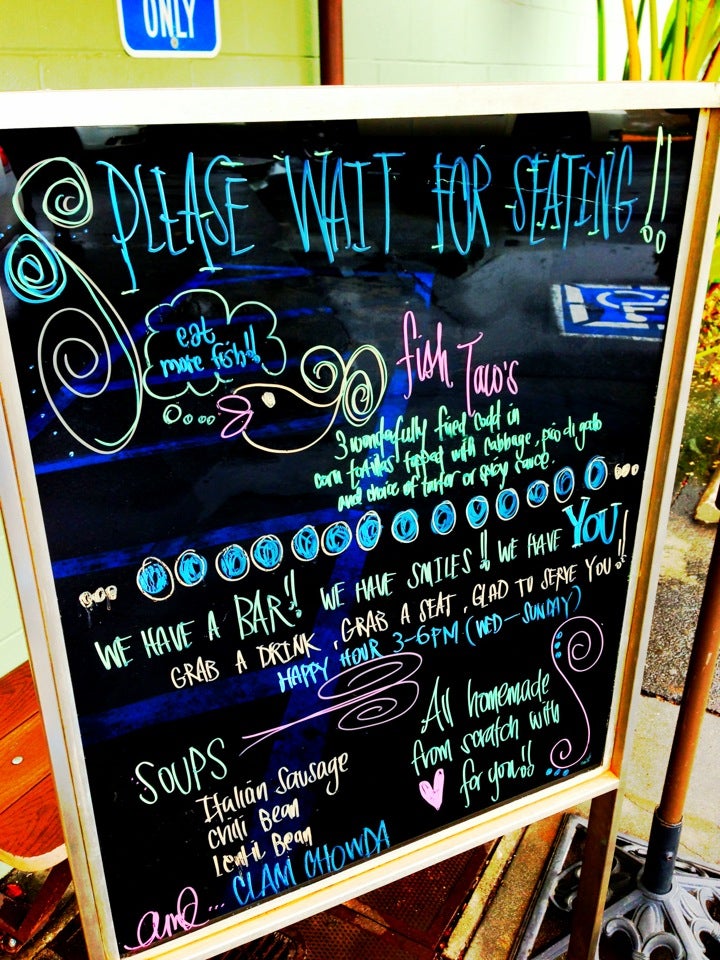 ONLY
PLEASE WAIT FOR SEATING!!
eat
more fish!!
fish Taco's
3 wonderfully fried codd in
corn tortillas topped with cabbage, pico di gallo
and choice of tartar or spicy sauce.
WE HAVE A BAR!! WE HAVE SMILES!! WE HAVE YOU!!
GRAB A DRINK, GRAB A SEAT, GLAD TO SERVE YOU!!
HAPPY HOUR 3-6PM (WED-SUNDAY)
SOUPS
Italian Sausage
Chili Bean
Lentil Bean
and... CLAM CHOWDA
All homemade
from scratch with
♥ for you!!